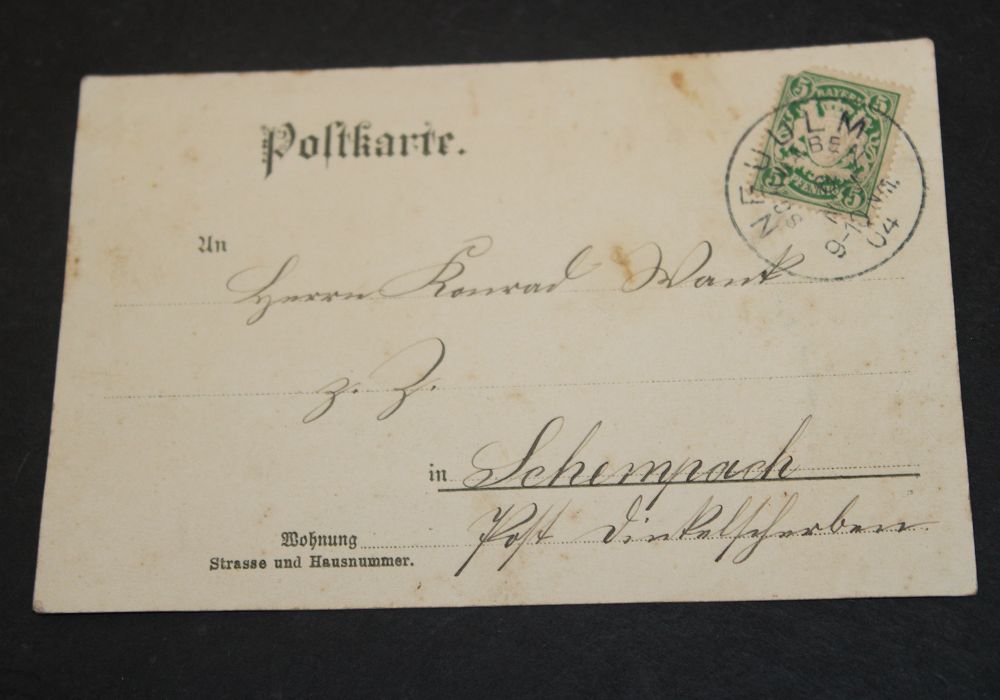 Postkarte.
5 BAYERN 5
5 PFENNIG 5
NEU ULM
9-10 Nm.
04
An
Herrn Konrad Wank
z. Z.
in Schempach
Post Dinkelscherben
Wohnung
Strasse und Hausnummer.